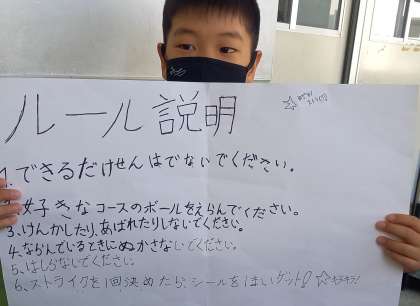 ルール説明
1.できるだけせんはでないでください。
2.好きなコースのボールをえらんでください。
3.けんかしたり、あばれたりしないでください。
4.ならんでいるときにぬかさないでください。
5.はしらないでください。
6.ストライクを1回決めたら、シールを1まいゲット!☆キラキラ!